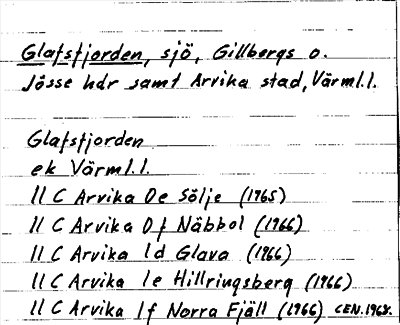 Glafsfjorden, sjö, Gillbergs o.
Jösse hdr samt Arvika stad, Värml.l.
Glafsfjorden
ek Värml.l.
11 C Arvika 0e Sölje (1965)
11 C Arvika 0f Näbbol (1966)
11 C Arvika 1d Glava (1966)
11 C Arvika 1e Hillringsberg (1966)
11 C Arvika 1f Norra Fjäll (1966) CEN. 1968.